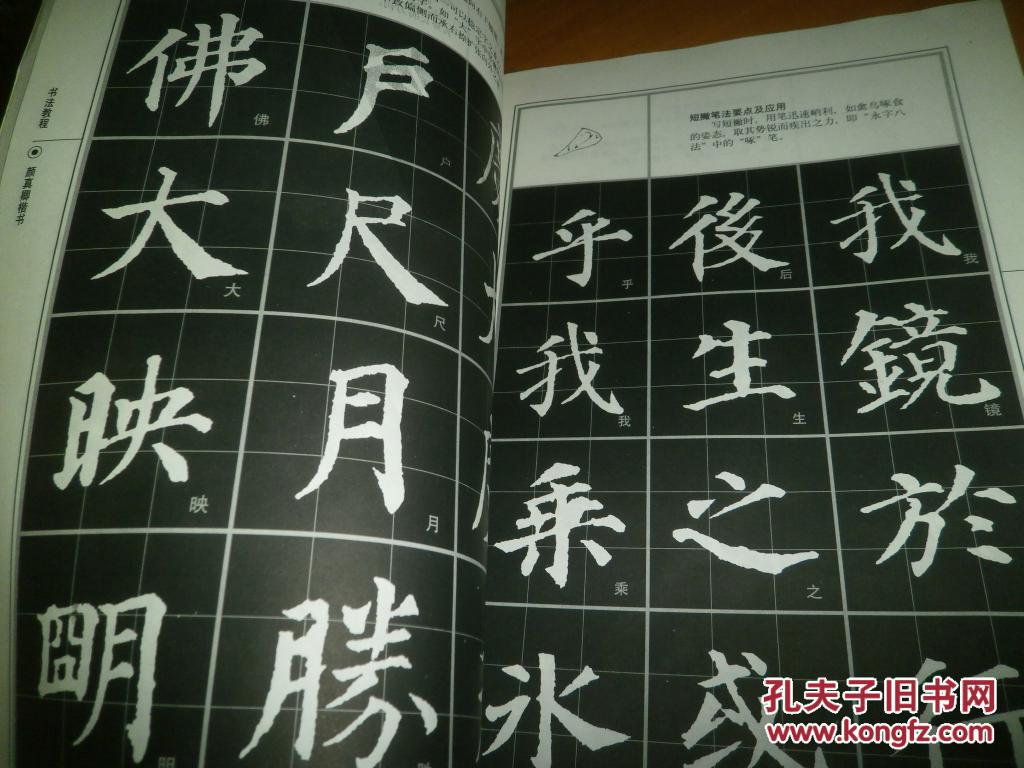 书法教程
颜真卿楷书
佛
佛
大
大
映
映
明
明
户
卢
尺
尺
月
月
勝
短撇笔法要点及应用
写短撇时，用笔迅速峭利，如禽鸟啄食
的姿态，取其势锐而疾出之力，即“永字八
法”中的“啄”笔。
乎
乎
後
后
我
我
我
我
生
生
鏡
镜
乘
乘
之
之
於
氷
或
行
孔夫子旧书网
www.kongfz.com